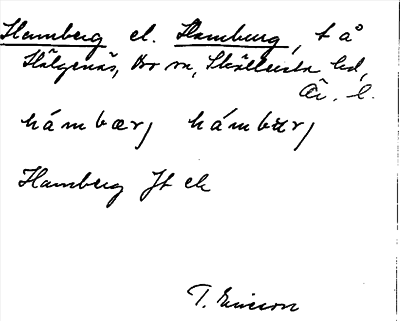 Hamberg el. Hamburg, t å
Hälgenäs, Bo sn, Sköllersta hd,
Ör. l.
hámbærj hámburj
Hamberg Jt ek
T. Ericson